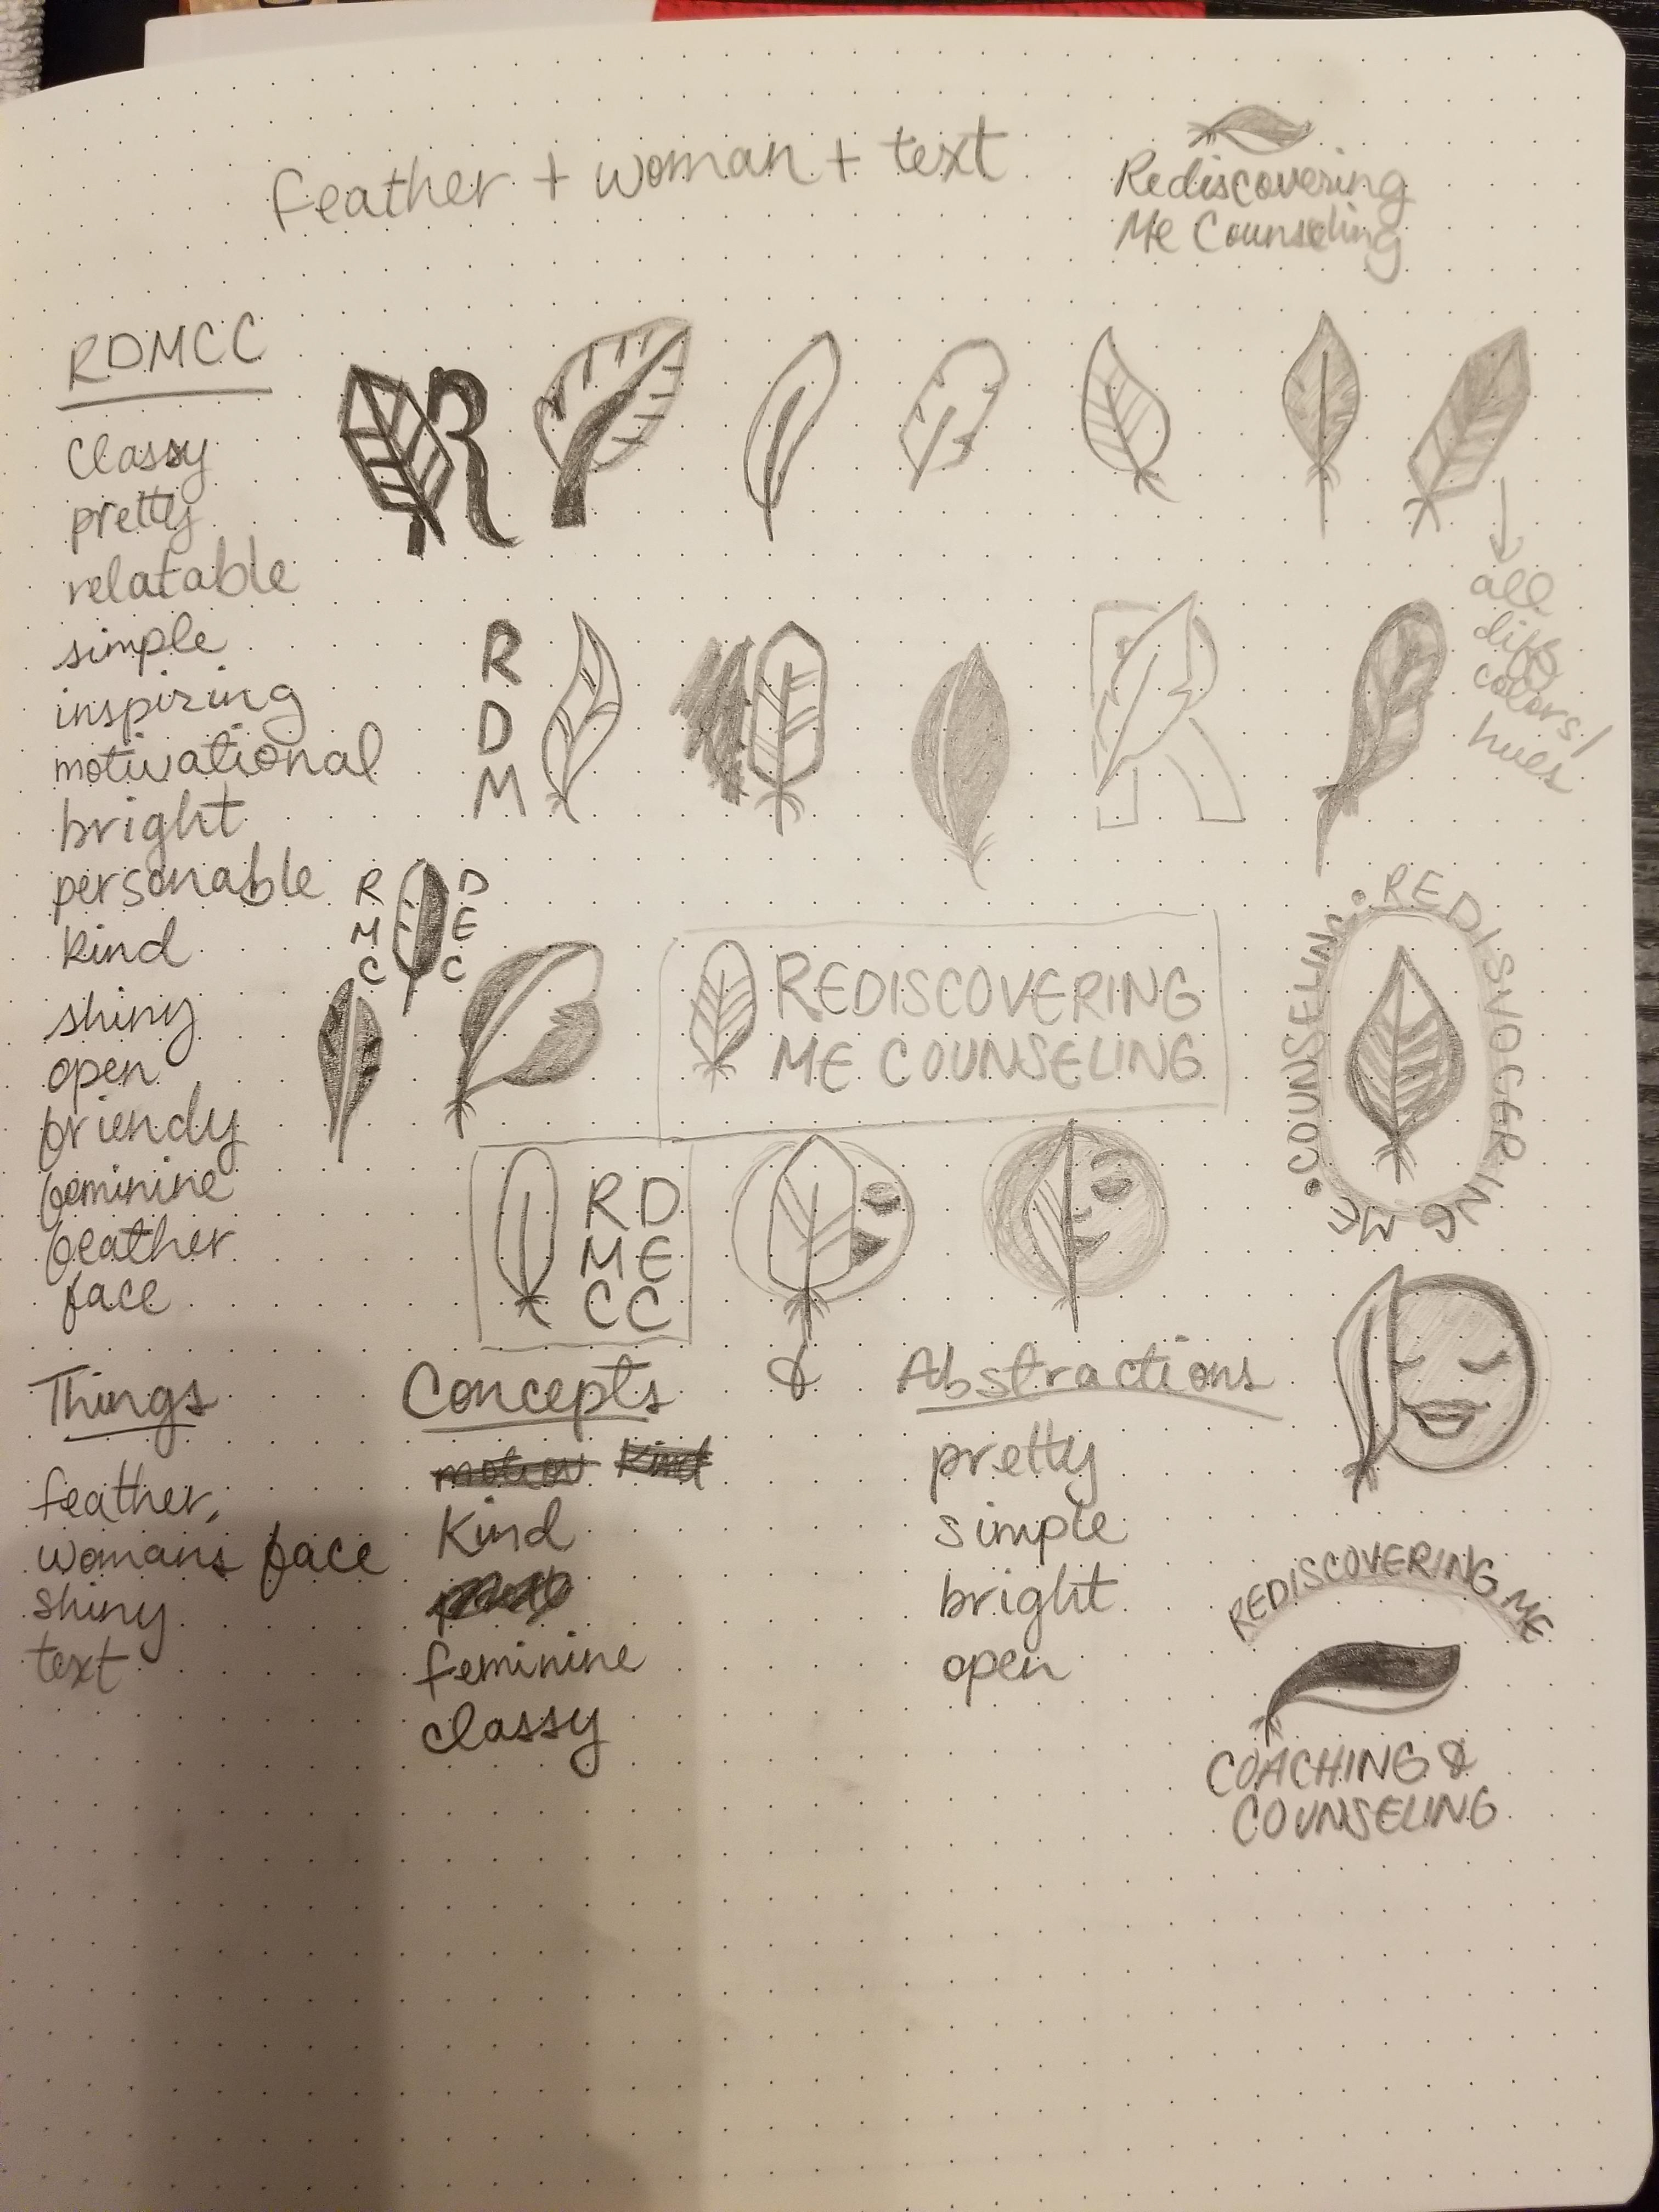 feather + woman + text
Rediscovering
Me Counseling
RDMCC
classy
pretty
relatable
simple
inspiring
motivational
bright
personable
kind
shiny
open
friendy
feminine
feather
face
R
all
diff
colors/
hues
R
D
M
R
R D
M E
C C
REDISCOVERING
ME COUNSELING
• REDISVOGERING ME • COUNSELING
RD
ME
CC
Things
feather,
womans face
shiny
text
Concepts
Kind
feminine
classy
&
Abstractions
pretty
simple
bright
open
REDISCOVERING ME
COACHING &
COUNSELING